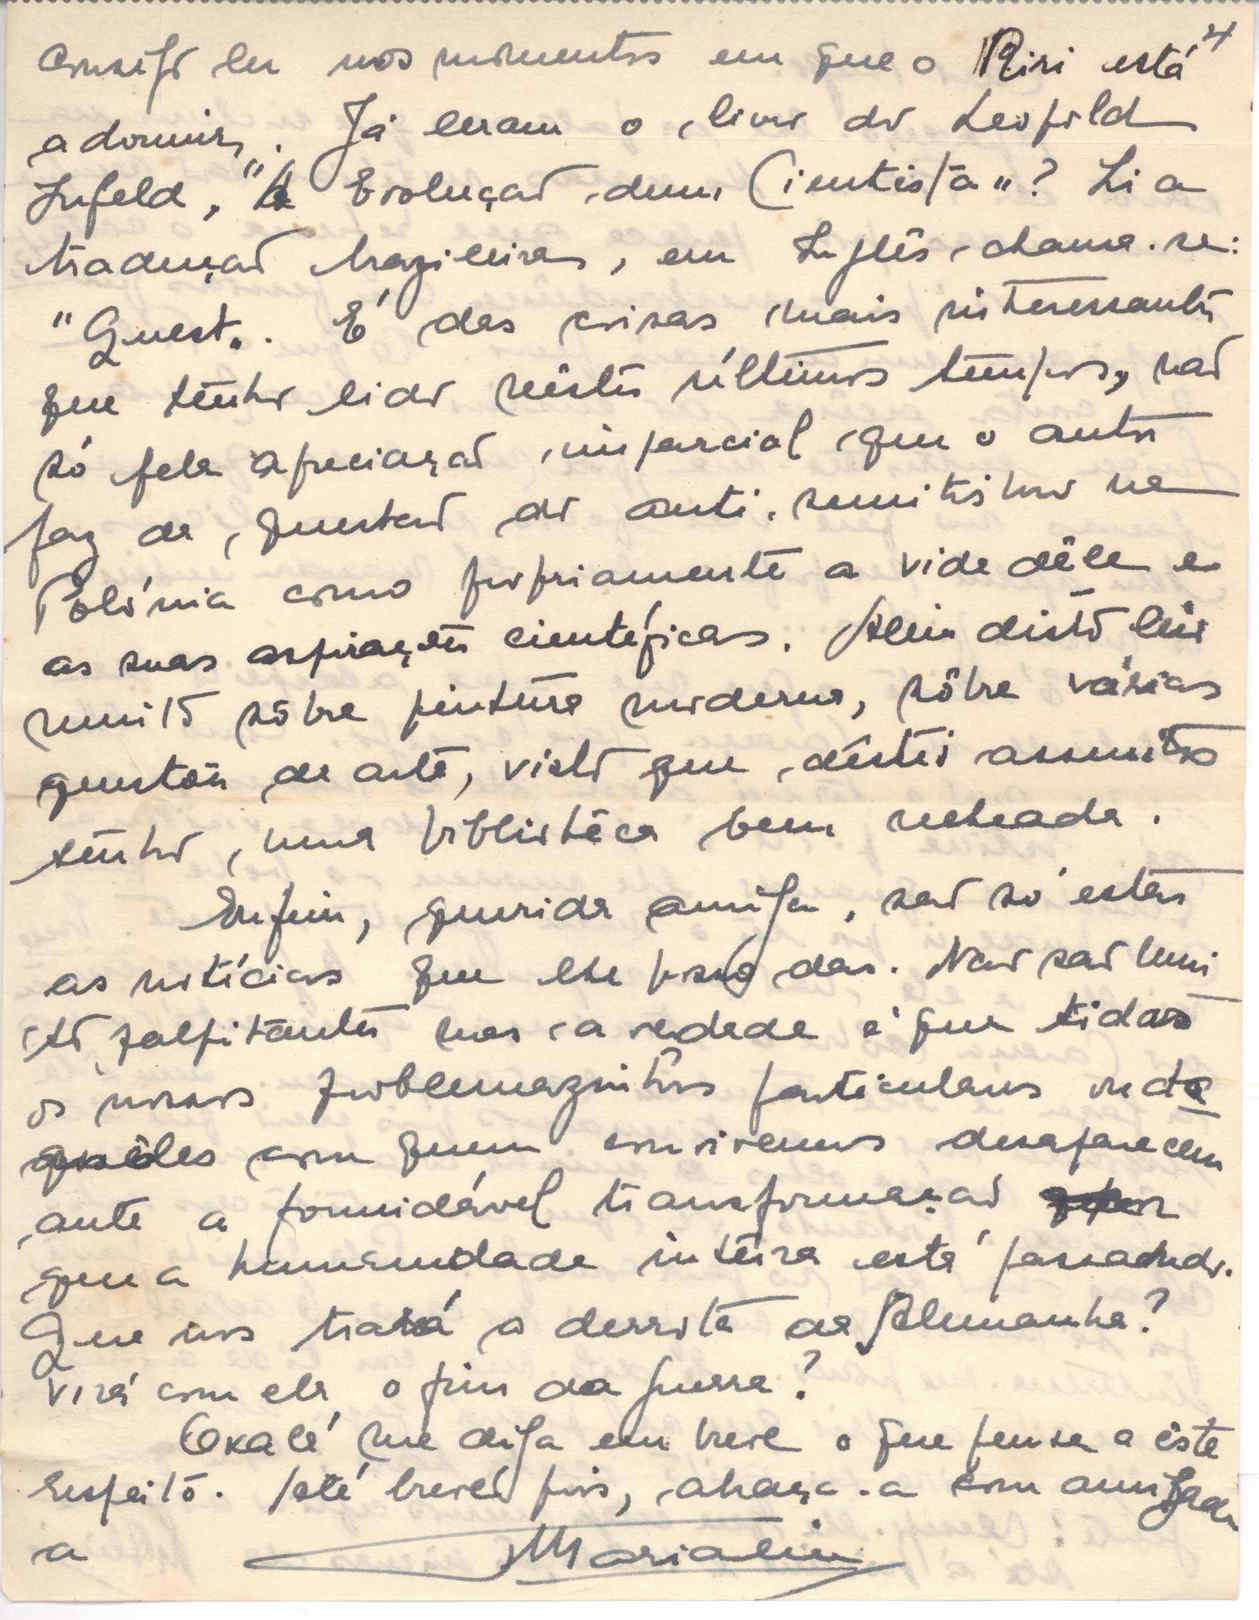 4
consigo ler nos momentos em que o Riri está
a dormir. Já leram o livro do Leopold
Infeld, "A Evolução dum Cientista"? Li a
tradução brazileira, em Inglês chama-se:
"Quest". É das coisas mais interessantes
que tenho lido nêstes últimos tempos, não
só pela apreciação imparcial que o autor
faz da questão do anti-semitismo na
Polónia como propriamente a vida dêle e
as suas aspirações científicas. Além disto leio
muito sôbre pintura moderna, sôbre várias
questões de arte, visto que dêstes assuntos
tenho uma bibliotéca bem recheada.
Enfim, querida amiga, são só estas
as notícias que lhe posso dar. Não são mui
to palpitantes mas a verdade é que todos
os nossos problemazinhos particulares ou da
quêles com quem convivemos desaparecem
ante a formidável transformação
que a humanidade inteira está passando.
Que nos trará a derrota da Alemanha?
Virá com ela o fim da guerra?
Oxalá me diga em breve o que pensa a êste
respeito. Até breve pois, abraça-a com amizade
a Marialia